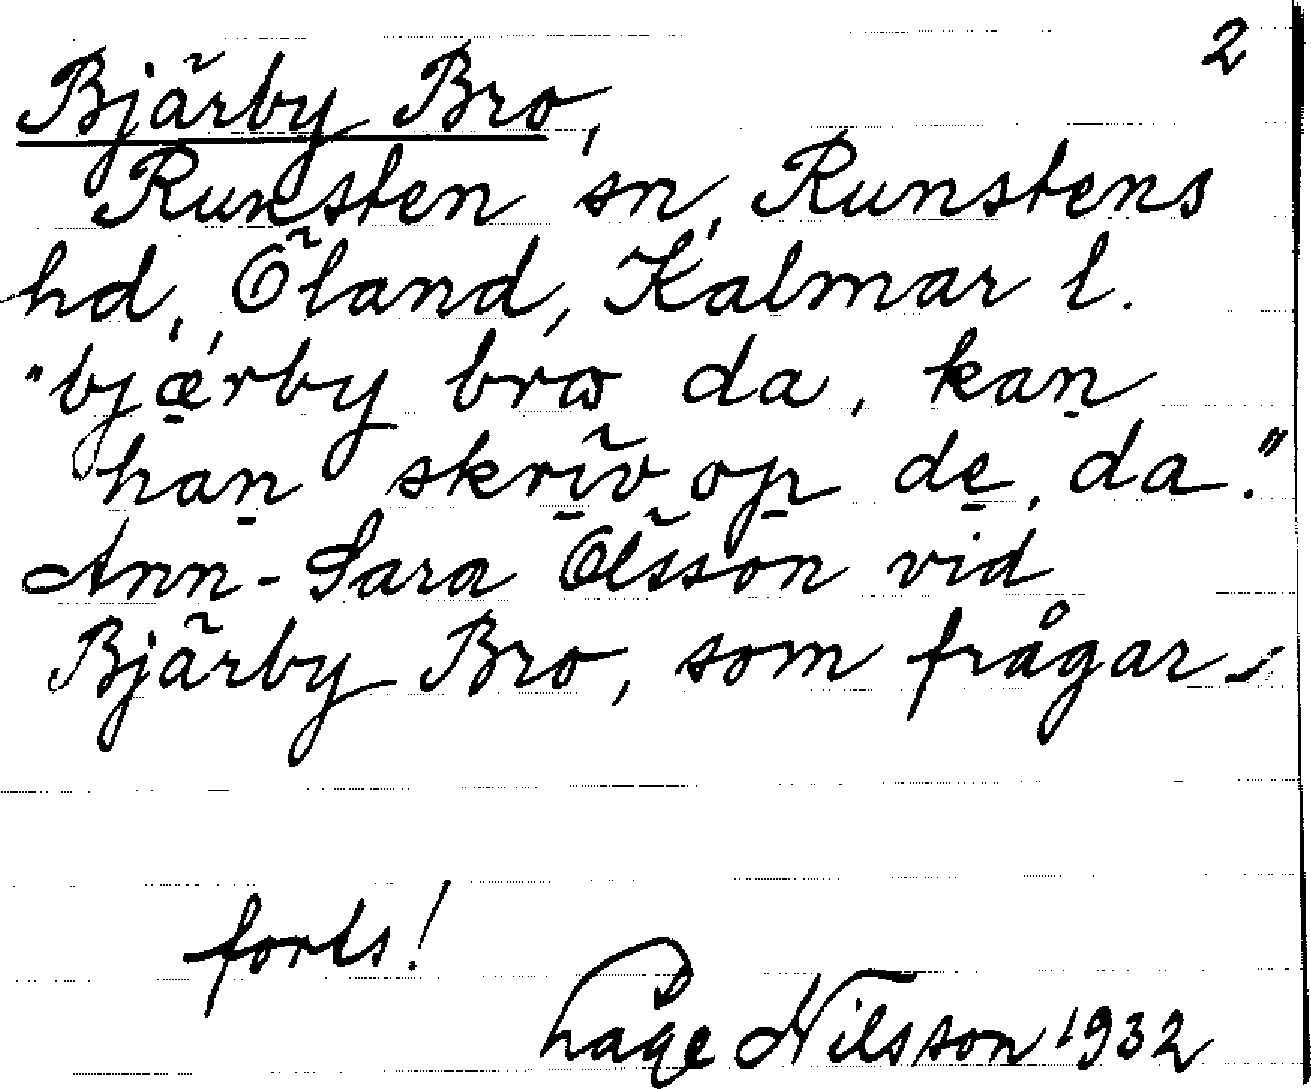 2
Bjärby Bro,
Runsten sn, Runstens
hd, Öland, Kalmar l.
"bjæ̠rby bro da, kan̠
han̠ skri̠v op̠ de̠, da."
Ann-Sara Olsson vid
Bjärby Bro, som frågar
forts!
Åge Nilsson 1932